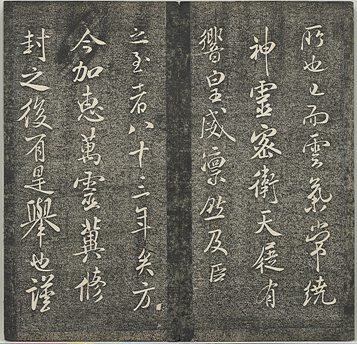 所也上而雲氣常繞
神靈密衛天屐有
響皇威凜然及臣
之至者八十三年矣方
今加惠萬靈冀修
封之後有是舉也謹